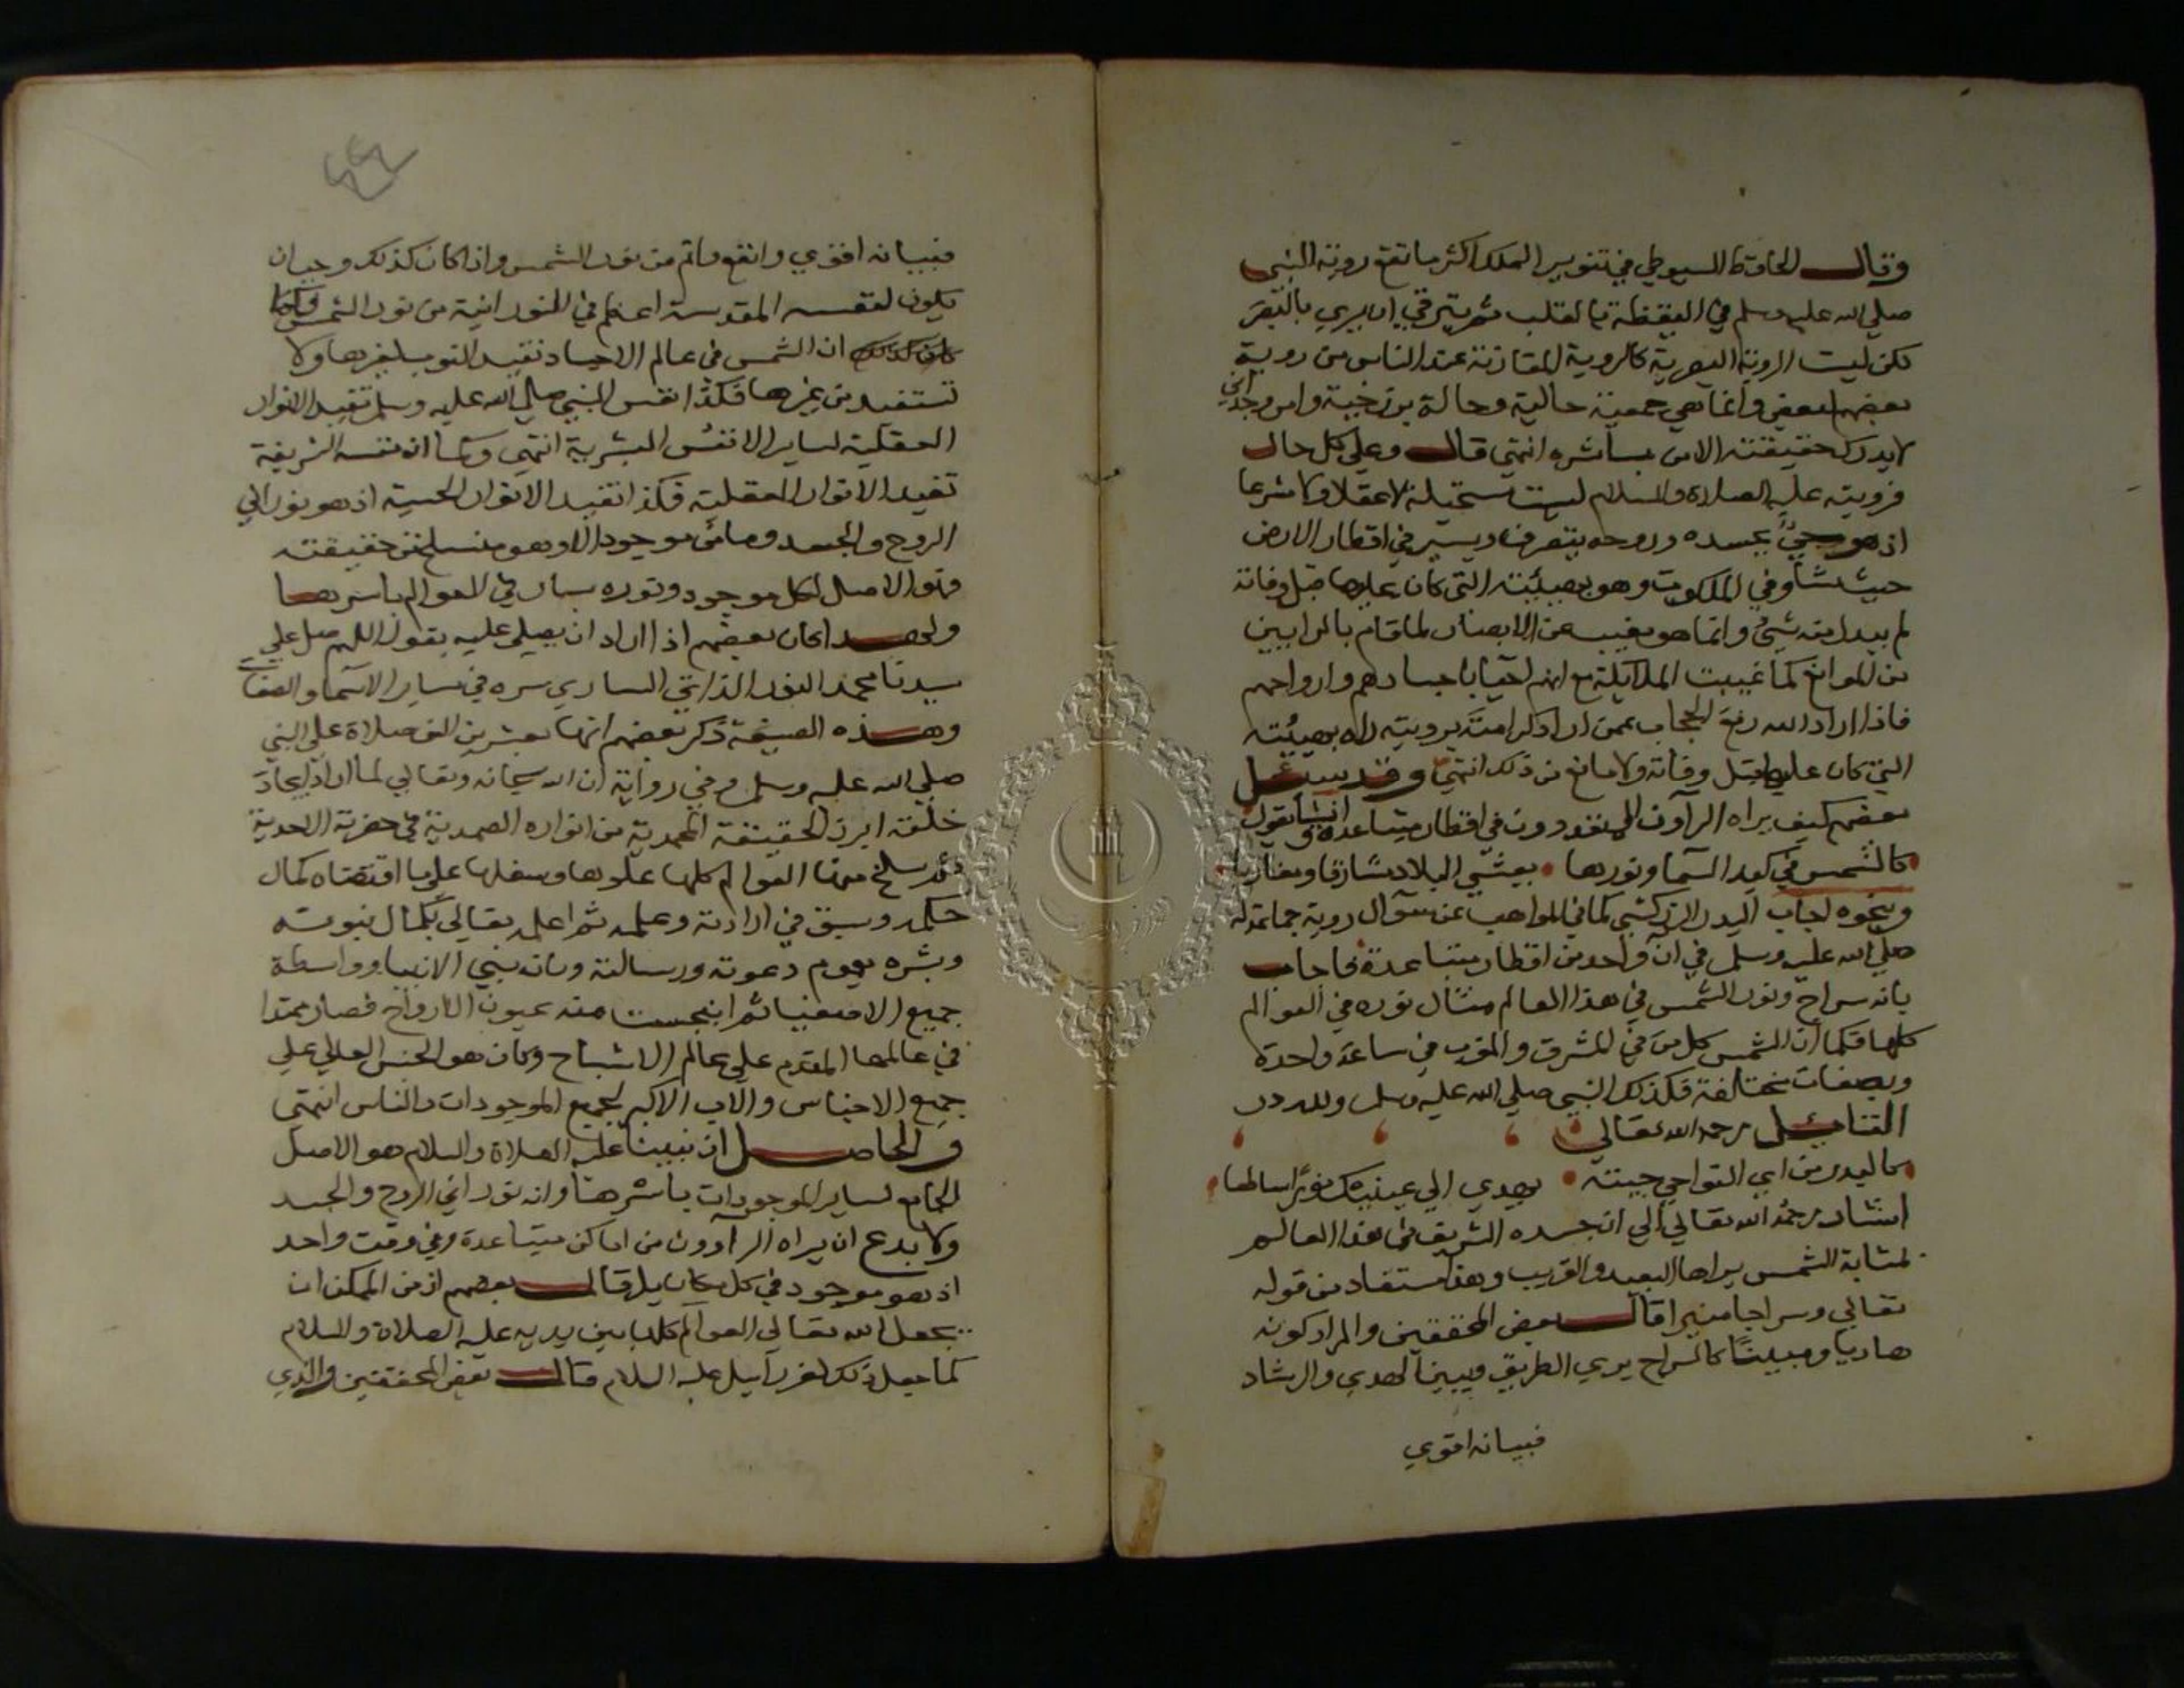 وقال الحافظ السيوطي في تنوير الحلك اكثر ما تقع روية النبي
صلي الله عليه وسلم في اليقظة بالقلب ثم يترقي الي ان يري بالبصر
لكن ليست الروية البصرية كالروية المتعارفة عند الناس من روية
بعضهم لبعض وانما هي جمعية حالية وحالة برزخية وامر وجداني
لا يدرك حقيقته الا من باشره انتهي قال وعلي كل حال
فرويته عليه الصلاة والسلام ليست مستحيلة لا عقلا ولا شرعا
اذ هو حي بجسده وروحه يتصرف ويسير في اقطار الارض
حيث شا وفي الملكوت وهو بهيئته التي كان عليها قبل وفاته
لم يبدل منه شي وانما هو مغيب عن الابصار لما قام بالرايين
من الموانع كما غيبت الملايكة مع انهم احيا باجسادهم وارواحهم
فاذا اراد الله رفع الحجاب عمن اراد كرامته برويته راه بهيئته
التي كان عليها قبل وفاته ولا مانع من ذلك انتهي وقد سئل
بعضهم كيف يراه الرآون المتعددون في اقطار متباعدة فانشا يقول
كالشمس في كبد السما ونورها يغشي البلاد مشارقا ومغاربا
وبنحوه اجاب البدر الزركشي كما في المواهب عن سوال روية جماعة له
صلي الله عليه وسلم في آن واحد من اقطار متباعدة فاجاب
بانه سراج ونور الشمس في هذا العالم مثال نوره في العوالم
كلها فكما ان الشمس كل من في المشرق والمغرب في ساعة واحدة
وبصفات مختلفة فكذلك النبي صلي الله عليه وسلم ولله در
القائل رحمه الله تعالي
كالبدر من اي النواحي جيته يهدي الي عينيك نورا ساطعا
اشار رحمه الله تعالي الي ان جسده الشريف في هذا العالم
بمثابة الشمس يراها البعيد والقريب وهذا مستفاد من قوله
تعالي وسراجا منيرا قال بعض المحققين والمراد كونه
هاديا ومبينا كالسراج يري الطريق ويبين الهدي والرشاد
فبيانه اقوي
فبيانه اقوي وانفع واتم من نور الشمس واذا كان كذلك وجب ان
يكون لنفسه المقدسة اعظم في النورانية من نور الشمس وكما
ان الشمس في عالم الاجساد تفيد النور لغيرها ولا
تستفيد من غيرها فكذا نفس النبي صلي الله عليه وسلم تفيد الانوار
العقلية لساير الانفس البشرية انتهي وكما ان نفسه الشريفة
تفيد الانوار العقلية فكذا تفيد الانوار الحسية اذ هو نوراني
الروح والجسد وما من موجود الا وهو منسلخ من حقيقته
وهو الاصل لكل موجود ونوره سار في العوالم باسرها
ولهذا كان بعضهم اذا اراد ان يصلي عليه يقول اللهم صل علي
سيدنا محمد النور الذاتي الساري سره في ساير الاسما والصفات
وهذه الصيغة ذكر بعضهم انها بعشرين الف صلاة علي النبي
صلي الله عليه وسلم وفي رواية ان الله سبحانه وتعالي لما اراد ايجاد
خلقه ابرز الحقيقة المحمدية من انواره الصمدية في حضرته الاحدية
ثم سلخ منها العوالم كلها علوها وسفلها علي ما اقتضاه كمال
حكمته وسبق في ارادته وعلمه ثم اعلمه تعالي بكمال نبوته
وبشره بعموم دعوته ورسالته وبانه نبي الانبيا وواسطة
جميع الاصفيا ثم انبجست منه عيون الارواح فصار ممدا
في عالمها المقدم علي عالم الاشباح وكان هو الجنس العالي علي
جميع الاجناس والاب الاكبر لجميع الموجودات والناس انتهي
والحاصل ان نبينا عليه الصلاة والسلام هو الاصل
الجامع لساير الموجودات باسرها وانه نوراني الروح والجسد
ولا بدع ان يراه الرآوون من اماكن متباعدة وفي وقت واحد
اذ هو موجود في كل مكان بل قال بعضهم ان من الممكن ان
يجعل الله تعالي العوالم كلها بين يديه عليه الصلاة والسلام
كما جعل ذلك لعزراييل عليه السلام قال بعض المحققين والذي